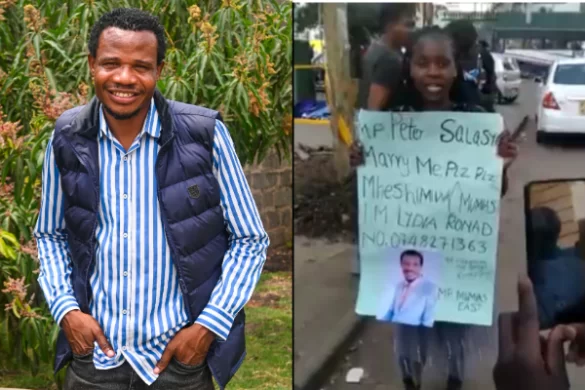 MP Peter Salasya
Marry Me Plz Plz
Mheshimiwa MUMIAS
I M LYDIA RONAD
NO. 0748271363
MP. MUMIAS
EAST